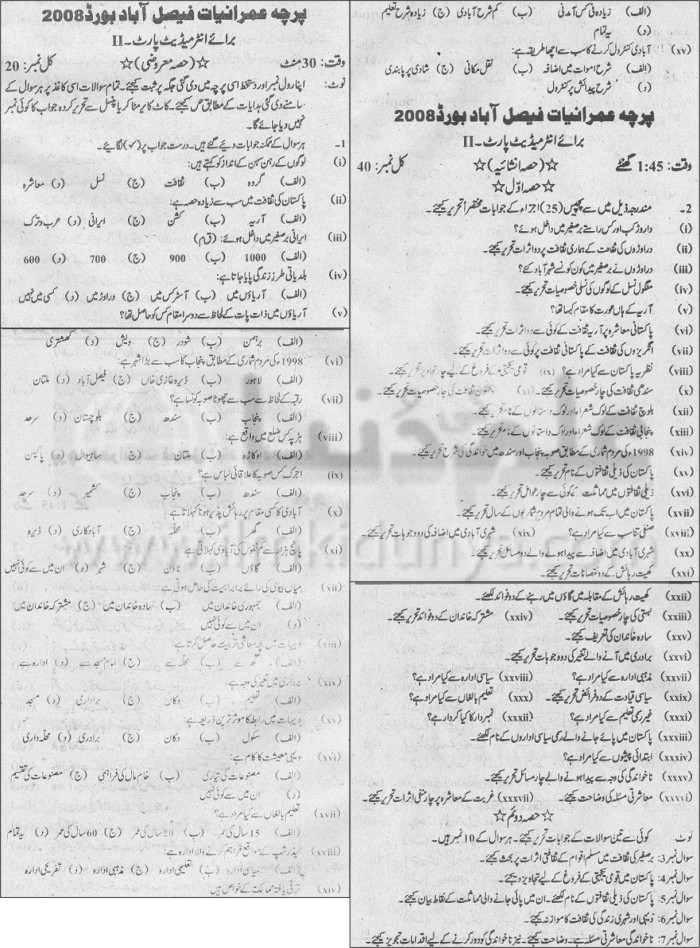 پرچہ عمرانیات فیصل آباد بورڈ 2008
برائے انٹرمیڈیٹ پارٹ۔ II
وقت: 30 منٹ ☆(حصہ معروضی)☆ کل نمبر: 20
نوٹ: اپنا رول نمبر اور دستخط اسی پرچہ میں دی گئی جگہ پر ثبت کیجئے۔ تمام سوالات اسی کاغذ پر ہر سوال کے
سامنے دی گئی ہدایات کے مطابق حل کیجئے۔ کاٹ کر یا مٹا کر یا پنسل سے تحریر کردہ جواب کا کوئی نمبر
نہیں دیا جائے گا۔
1۔ ہر سوال کے ممکنہ جوابات دیئے گئے ہیں۔ درست جواب پر (✓) لگائیے۔
(i) لوگوں کے رہن سہن کے انداز کو کہتے ہیں:
(الف) گروہ (ب) ثقافت (ج) نسل (د) معاشرہ
(ii) پاکستان کی ثقافت میں سب سے زیادہ حصہ ہے:
(الف) آریہ (ب) کشن (ج) ایرانی (د) عرب و ترک
(iii) ایرانی برصغیر میں داخل ہوئے: (ق م)
(الف) 1000 (ب) 900 (ج) 700 (د) 600
(iv) بلدیاتی طرز زندگی پایا جاتا ہے:
(الف) آریاؤں میں (ب) آسٹرکس میں (ج) دراوڑ میں (د) کسی میں نہیں
(v) آریاؤں میں ذات پات کے لحاظ سے دوسرا مقام کس کو حاصل تھا؟
(الف) برہمن (ب) شودر (ج) ویش (د) کھشتری
(vi) 1998ء کی مردم شماری کے مطابق پنجاب کا سب سے بڑا شہر ہے:
(الف) لاہور (ب) ڈیرہ غازی خاں (ج) فیصل آباد (د) ملتان
(vii) رقبہ کے لحاظ سے سب سے چھوٹا صوبہ کونسا ہے؟
(الف) پنجاب (ب) سندھ (ج) بلوچستان (د) سرحد
(viii) ہڑپہ کس ضلع میں واقع ہے:
(الف) اوکاڑہ (ب) ملتان (ج) ساہیوال (د) پاکپتن
(ix) اجرک کس صوبہ کا علاقائی لباس ہے؟
(الف) سندھ (ب) پنجاب (ج) کشمیر (د) سرحد
(x) آبادی کا کسی مقام پر رہائش پذیر ہونا کہلاتا ہے:
(الف) گھر (ب) محلہ (ج) آبادکاری (د) ڈیرہ
(xi) پانچ ہزار سے کم لوگوں کی آبادی کہلاتی ہے:
(الف) گاؤں (ب) ٹاؤن (ج) شہر (د) ان میں سے کوئی نہیں
(xii) میاں بیوی کی رائے برابر اہمیت کی حامل ہوتی ہے:
(الف) جمہوری خاندان میں (ب) سادہ خاندان میں (ج) مشترکہ خاندان میں
(د) ان میں سے کوئی نہیں
(xiii) دیہات میں بچہ معاشی تربیت حاصل کرتا ہے:
(الف) گھر سے (ب) محلہ سے (ج) امام مسجد سے (د) ادارہ سے
(xiv) برادری میں تغیر کی وجہ ہے:
(الف) تعلیم (ب) دکان (ج) برادری (د) مسجد
(xv) دیہات میں رابطہ کا موثر ترین ذریعہ ہے:
(الف) سکول (ب) دکان (ج) برادری (د) محلہ داری
(xvi) دیہی معیشت کا کام ہے:
(الف) مصنوعات کی تیاری (ب) خام مال کی فراہمی (ج) مصنوعات کی تقسیم
(د) ان میں سے کوئی نہیں
(xvii) تعلیم بالغاں سے کیا مراد ہے؟
(الف) 15 سال کی عمر (ب) 20 سال کی عمر (ج) 60 سال کی عمر (د) یہ تمام
(xviii) لیڈرشپ کے مواقع فراہم کرنے والا ادارہ ہے:
(الف) سیاسی ادارہ (ب) تعلیمی ادارہ (ج) مذہبی ادارہ (د) تفریحی ادارہ
(xiv) ترقی یافتہ ممالک کے خواص ہیں:
(الف) زیادہ فی کس آمدنی (ب) کم شرح آبادی (ج) زیادہ شرح تعلیم
(د) یہ تمام
(xv) آبادی کنٹرول کرنے کا سب سے اچھا طریقہ ہے:
(الف) شرح اموات میں اضافہ (ب) نقل مکانی (ج) شادی پر پابندی
(د) شرح پیدائش پر کنٹرول
پرچہ عمرانیات فیصل آباد بورڈ 2008
برائے انٹرمیڈیٹ پارٹ۔ II
وقت: 1:45 گھنٹے ☆(حصہ انشائیہ)☆ کل نمبر: 40
☆ حصہ اوّل ☆
2۔ مندرجہ ذیل میں سے پچیس (25) اجزاء کے جوابات مختصراً تحریر کیجئے۔
(i) دراوڑ کب اور کس راستے برصغیر میں داخل ہوئے؟
(ii) دراوڑوں کی ثقافت کے ہماری ثقافت پر دو اثرات تحریر کیجئے۔
(iii) دراوڑوں نے برصغیر میں کون کونسے شہر آباد کئے؟
(iv) منگول نسل کے لوگوں کی نسلی خصوصیات تحریر کیجئے۔
(v) آریہ کے ہاں عورت کا مقام کیسا تھا؟
(vi) پاکستانی معاشرہ پر آریہ ثقافت کے کوئی سے دو اثرات تحریر کیجئے۔
(vii) انگریزوں کی ثقافت کے پاکستانی ثقافت پر کوئی سے دو اثرات تحریر کیجئے۔
(viii) نظریہ پاکستان سے کیا مراد ہے؟ (ix) قومی یکجہتی کے فروغ کے لیے چار تجاویز تحریر کیجئے۔
(x) سندھی ثقافت کی چار خصوصیات تحریر کیجئے۔ (xi) پختون ثقافت کی چار خصوصیات تحریر کیجئے۔
(xii) بلوچ ثقافت کے لوک شعراء اور لوک داستانوں کے نام تحریر کیجئے۔
(xiii) پنجابی ثقافت کے لوک شعراء اور لوک داستانوں کے نام تحریر کیجئے۔
(xiv) 1998ء کی مردم شماری کے مطابق صوبہ پنجاب اور سندھ میں خواندگی کی شرح تحریر کیجئے۔
(xv) پاکستان کی ذیلی ثقافتوں کے نام تحریر کیجئے۔
(xvi) ذیلی ثقافتوں میں مماثلت کے کوئی سے چار عوامل تحریر کیجئے۔
(xvii) پاکستان میں اب تک ہونے والی تمام مردم شماریوں کے سال تحریر کیجئے۔
(xviii) صنفی تناسب سے کیا مراد ہے؟ (xix) شہری آبادی میں اضافہ کی دو وجوہات تحریر کیجئے۔
(xx) شہری آبادی میں اضافہ سے پیدا ہونے والے دو مسائل تحریر کیجئے۔
(xxi) کھیت رہائش کے دو نقصانات تحریر کیجئے۔
(xxii) کھیت رہائش کے مقابلہ میں گاؤں میں رہنے کے دو فوائد لکھئے۔
(xxiii) بستی کی چار خصوصیات تحریر کیجئے۔ (xxiv) مشترکہ خاندان کے دو فوائد تحریر کیجئے۔
(xxv) سادہ خاندان کی تعریف کیجئے۔
(xxvi) برادری میں آنے والے تغیر کی دو وجوہات تحریر کیجئے۔
(xxvii) مذہبی ادارہ سے کیا مراد ہے؟ (xxviii) سیاسی ادارہ سے کیا مراد ہے؟
(xxix) سیاسی قیادت کے دو فرائض تحریر کیجئے۔ (xxx) تعلیم بالغاں سے کیا مراد ہے؟
(xxxi) غیر رسمی تعلیم سے کیا مراد ہے؟ (xxxii) نمبردار کا کیا کردار ہے؟
(xxxiii) پاکستان میں پائے جانے والے رسمی سیاسی اداروں کے نام لکھئے۔
(xxxiv) ابتدائی پیشوں سے کیا مراد ہے؟
(xxxv) ناخواندگی کی وجہ سے پیدا ہونے والے چار مسائل تحریر کیجئے۔
(xxxvi) معاشرتی مسئلہ کی وضاحت کیجئے۔ (xxxvii) غربت کے معاشرہ پر چار منفی اثرات تحریر کیجئے۔
☆ حصہ دوئم ☆
نوٹ کوئی سے تین سوالات کے جوابات تحریر کیجئے۔ ہر سوال کے 10 نمبر ہیں۔
سوال نمبر 3: برصغیر کی ثقافت میں مسلم اقوام کے ثقافتی اثرات پر بحث کیجئے۔
سوال نمبر 4: پاکستان میں قومی یکجہتی کے فروغ کے لیے تجاویز دیجئے۔
سوال نمبر 5: پاکستان کی ذیلی ثقافتوں کے نام لکھئے۔ ان میں پائی جانے والی مماثلت کے نقاط بیان کیجئے۔
سوال نمبر 6: دیہی اور شہری زندگی کی ثقافت کا موازنہ کیجئے۔
سوال نمبر 7: ناخواندگی معاشرتی مسئلہ ہے۔ وضاحت کیجئے۔ نیز ناخواندگی کو دور کرنے کے لیے اقدامات تجویز کیجئے۔